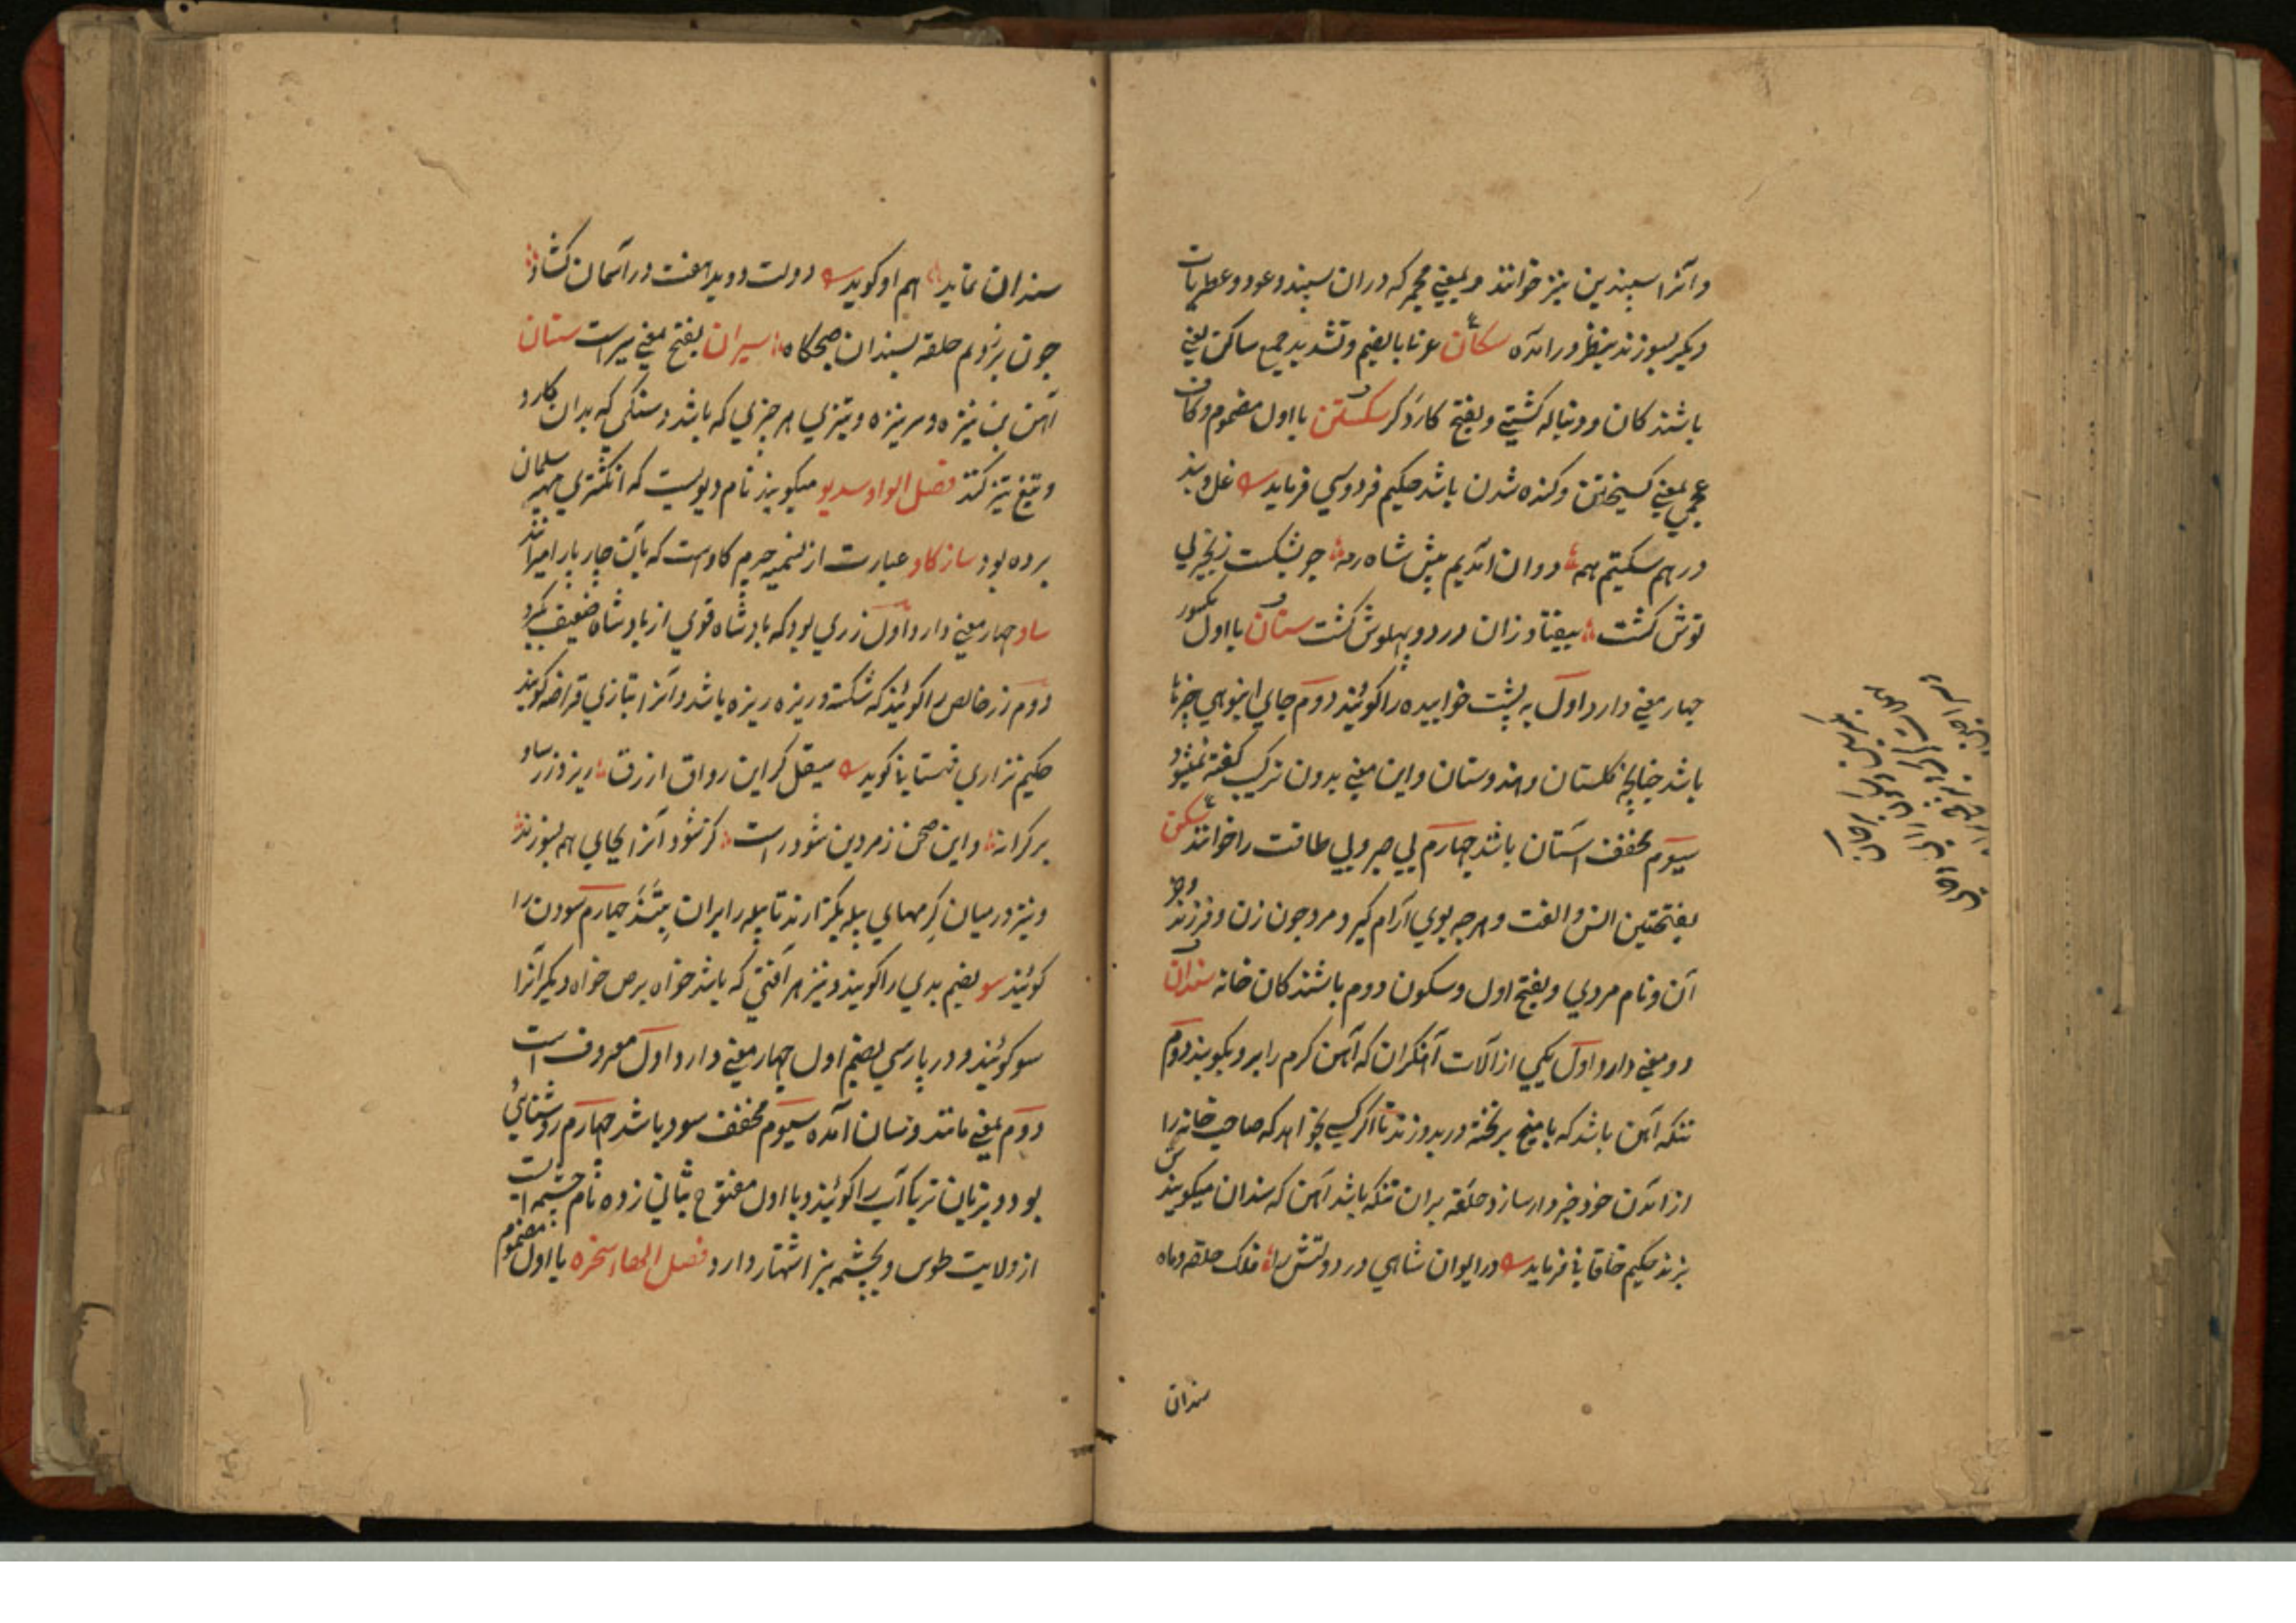 و آنرا سپندین نیز خوانند و بمعنی مجمر که دران سپند و عود و عطریات
دیکر بسوزند بنظر در امده سکان ع نا بالضم و تشدید جمع ساکن یعنی
باشندکان و دنباله کشتی و بفتح کاردکر سکستن با اول مضموم و کاف
عجمی بمعنی کسیختن و کنده شدن باشد حکیم فردوسی فرماید غل و بند
در هم سکستیم همه دوان امدیم پیش شاه رمه چو بشکست زنجیر بی
توش کشت بیفتاد زان درد و بیهوش کشت ستان با اول مکسور
چهار معنی دارد اول به پشت خوابیده را کویند دوم جای انبوهی چیزها
باشد چنانچه کلستان و هندوستان و این معنی بدون ترکیب کفته نمیشود
سیوم مخفف استان باشد چهارم بی صبر و بی طاقت را خوانند سکن
بفتحتین انس و الفت و هرچه بوی آرام کیرد مرد چون زن و فرزند و جز
آن و نام مردی و بفتح اول و سکون دوم باشندکان خانه سندان
دو معنی دارد اول یکی از آلات آهنکران که آهن کرم را برو بکوبند دوم
تنکه آهن باشد که بامیخ بر تخته در بدوزند تا اکر کسی بخواهد که صاحب خانه را
از امدن خود خبردار سازد حلقه بران تنکه باشد آهن که سندان میکویندش
بزند حکیم خاقانی فرماید در ایوان شاهی در دولتش را فلک حلقه و ماه
سندان
سندان نماید هم او کوید دولت دوید و هفت در آسمان کشاد
چون بر زدم حلقه بسندان صبحکاه سیران بفتح بمعنی سیر است سنان
آهن بن نیزه و سر نیزه و تیزی هر چیزی که باشد و سنکی که بدان کارد
و تیغ تیز کنند فصل الواو سدیو میکویند نام دیویست که انکشتری مهتر سلیمان
برده بود ساز کاو عبارت از تسمه چرم کاو است که بآن چارپا را میرانند
ساو چهار معنی دارد اول زری بود که بادشاه قوی از بادشاه ضعیف بکیرد
دوم زر خالص را کویند که شکسته و ریزه ریزه باشد و آنرا بتازی قراضه کویند
حکیم نزاری قهستانی کوید سیقل کر این رواق ازرق ریزد زر ساو
بر کرانه و این صحن زمردین شود راست کر نشود آنرا بجایی هم بسوزند
و نیز در میان کرمهای پیله بکذارند تا پیله را بران بتنند چهارم سودن را
کویند سو بضم بدی را کویند و نیز هر آفتی که باشد خواه برص خواه دیکر آنرا
سو کویند و در پارسی بضم اول چهار معنی دارد اول معروف است
دوم بمعنی مانند و نسان آمده سیوم مخفف سود باشد چهارم روشنایی
بود و بزبان ترکی آب را کویند و با اول مفتوح بثانی زده نام چشمه است
از ولایت طوس و بچشمه سبز اشتهار دارد فصل الها سخره با اول مضموم